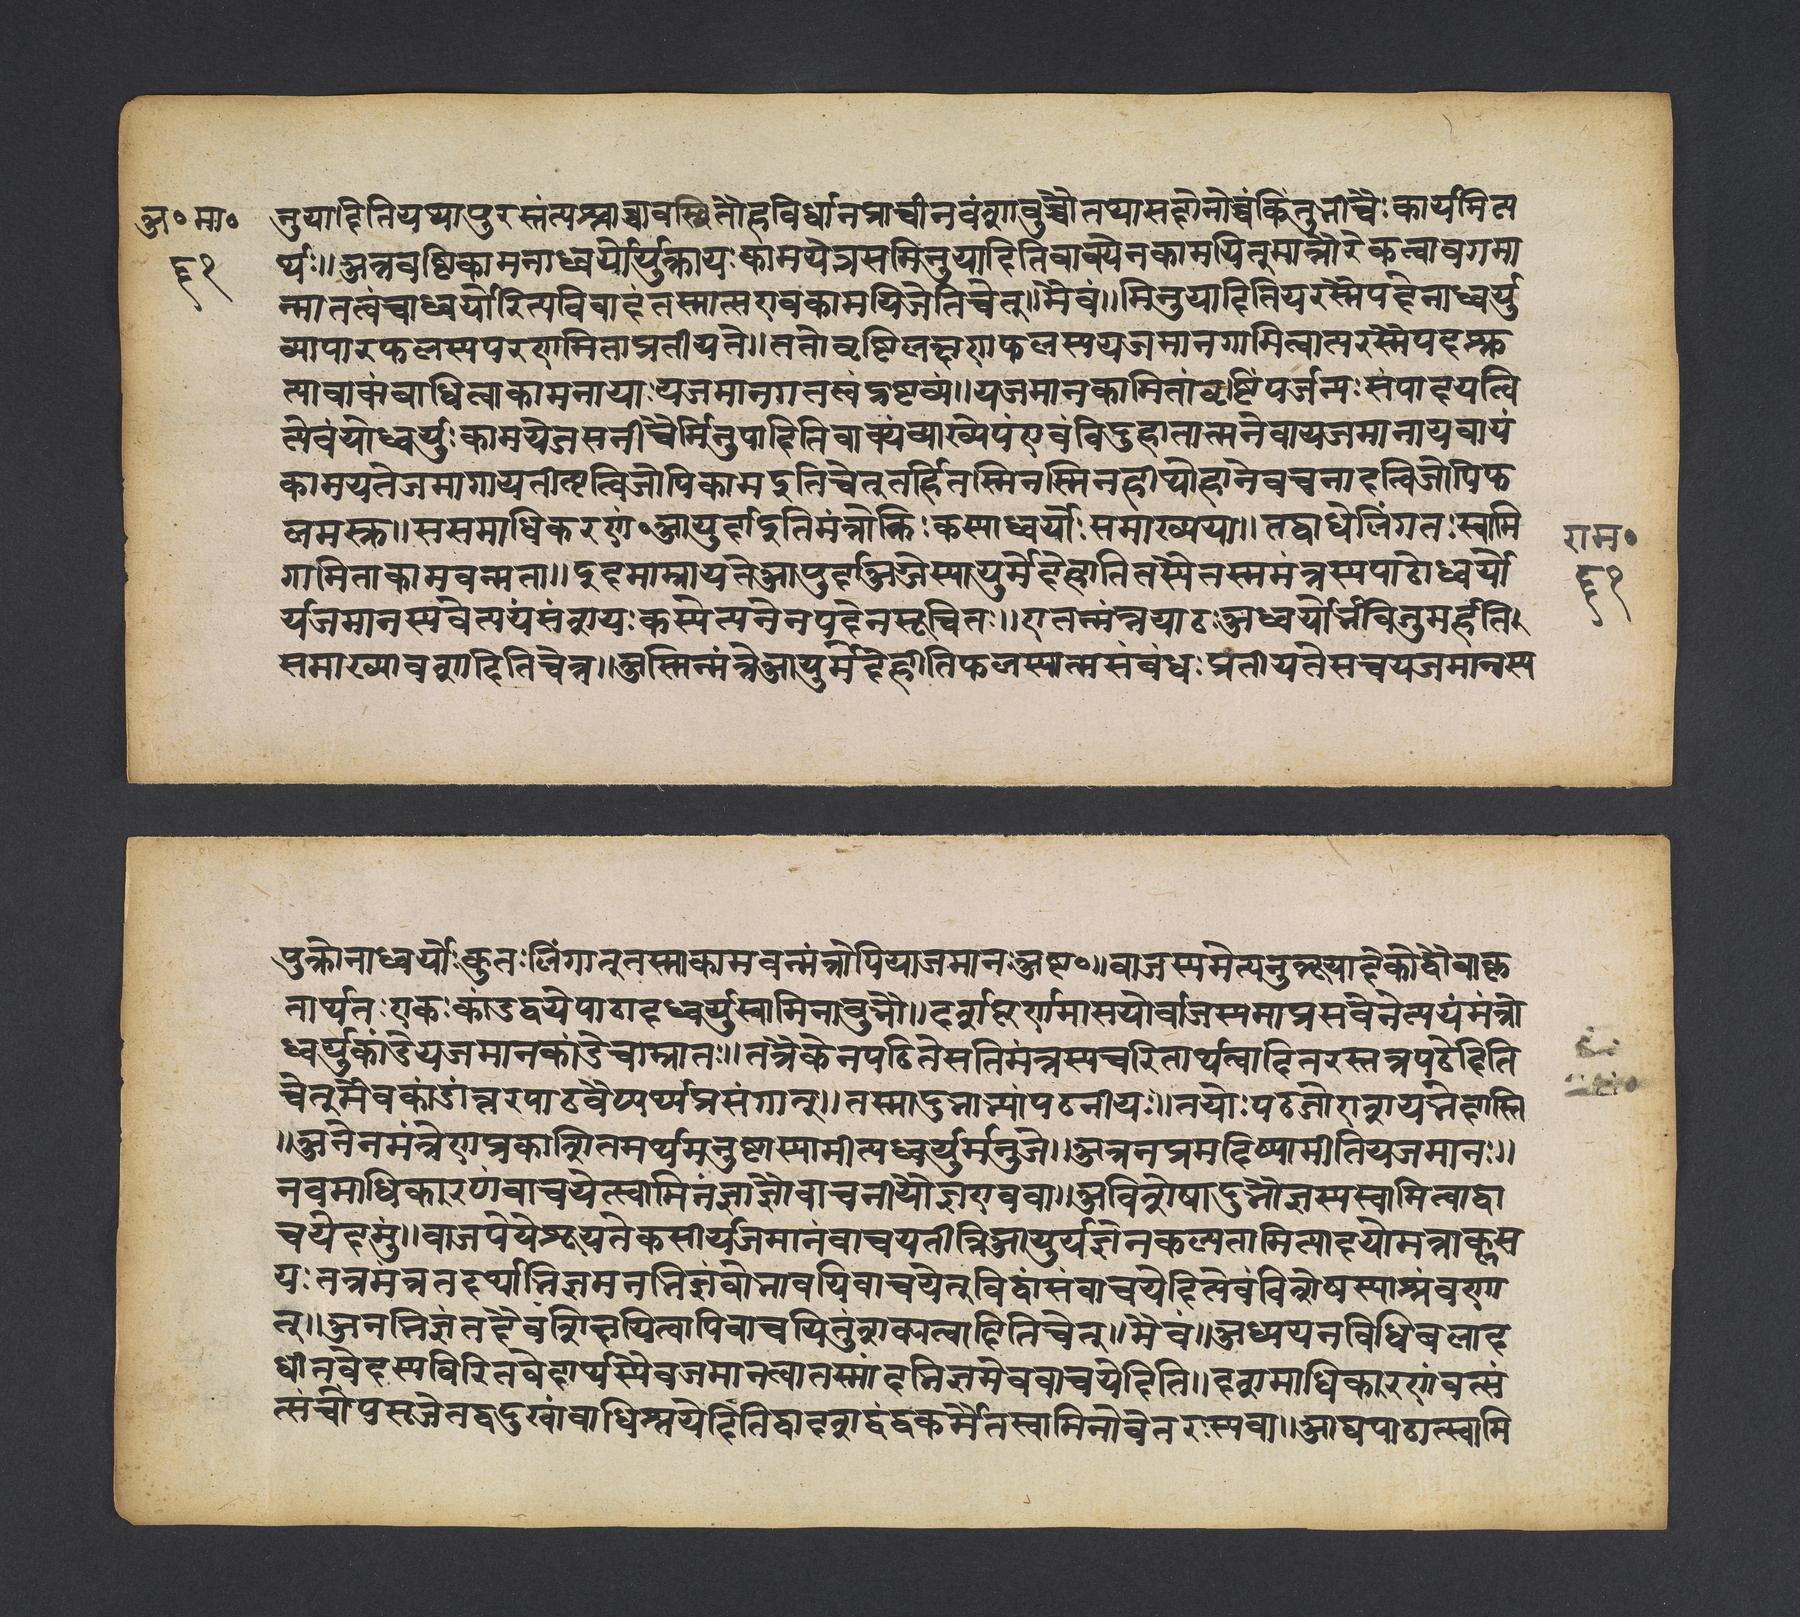 अ॰ मा॰
६१
नुयादितियथापुरस्तात्पश्चाच्चावस्थितौहविर्धानप्राचीनवंशावुच्चौतथासदोनोच्चंकिंतुनीचैःकार्यमित्य
र्थः॥अत्रवृष्टिकामनाध्वर्योर्युक्तायःकामयेतसमिनुयादितिवाक्येनकामयितृमात्रोरेकत्वावगमा
न्मातृत्वंचाध्वर्योरित्यविवादंतस्मात्सएवकामयितेतिचेत्॥मैवं॥मिनुयादितिपरस्मैपदेनाध्वर्यु
व्यापारफलस्यपरगामिताप्रतीयते॥ततोवृष्टिलक्षणफलस्ययजमानगामित्वात्परस्मैपदश्रु
त्यावाक्यंबाधित्वाकामनायाःयजमानगतत्वंद्रष्टव्यं॥यजमानकामितांवृष्टिंपर्जन्यःसंपादयत्वि
त्येवंयोध्वर्युःकामयेतसनीचैर्मिनुयादितिवाक्यंव्याख्येयंएवंविदुद्गातात्मनेवायजमानायवायं
कामयतेतमागायतीतिऋत्विजोपिकामइतिचेत्तर्हितस्मिनस्मिन्नुद्गीथोद्गानेवचनादृत्विजोपिफ
लमस्तु॥ससमाधिकरणं॰आयुर्दाइतिमंत्रोक्तिःकस्याध्वर्योःसमाख्यया॥तद्बाधेलिंगतःस्वामि
गामिताकामवन्मता॥इदमाम्नायतेआयुर्दाअग्नेस्यायुर्मेदेहीतितस्यैतस्यमंत्रस्यपाठोध्वर्यो
र्यजमानस्यवेत्ययंसंशयःकस्येत्यनेनपदेनसूचितः॥एतन्मंत्रपाठःअध्वर्योर्भवितुमर्हति
समाख्यावशादितिचेन्न॥अस्मिन्मंत्रेआयुर्मेदेहीतिफलस्यात्मसंबंधःप्रतीयतेसचयजमानस्य
राम॰
६१
युक्तोनाध्वर्योःकुतःलिंगात्ततस्मात्कामवन्मंत्रोपियाजमानःअष्ट॰॥वाजस्यमेत्यनुब्रूयादेकोद्वौवाकृ
तार्थतःएकःकांडद्वयेपाठादध्वर्युस्वामिनावुभौ॥दर्शपूर्णमासयोर्वाजस्यमाप्रसवेनेत्ययंमंत्रो
ध्वर्युकांडेयजमानकांडेचाम्नातः॥तत्रैकेनपठितेसतिमंत्रस्यचरितार्थत्वादितरस्तन्नपठेदिति
चेत्मैवंकांडांतरपाठवैयर्थ्यप्रसंगात्॥तस्मादुभाभ्यांपठनीयः॥तयोःपठतोराशयभेदोस्ति
॥अनेनमंत्रेणप्रकाशितमर्थमनुष्ठास्यामीत्यध्वर्युर्मनुते॥अत्रनप्रमदिष्यामीतियजमानः॥
नवमाधिकारणंवाचयेत्स्वामिनंज्ञाज्ञौवाचनीयौज्ञएववा॥अविशेषादुभौज्ञस्यस्वामित्वाद्वा
चयेदमुं॥वाजपेयेश्रूयतेकसीर्यजमानंवाचयतीतिआयुर्यज्ञेनकल्पतामित्यादयोमंत्राकॢप्तस
यःतत्रमंत्रतदर्थाभिज्ञमनभिज्ञंवोभावपिवाचयेत्विद्वांसंवाचयेदित्येवंविशेषस्याश्रवणा
त्॥अनभिज्ञंतदैवशिक्षयित्वापिवाचयितुंशक्यत्वादितिचेत्॥मैवं॥अध्ययनविधिबलाद
धीतवेदस्यविदितवेदार्थस्यैवयजमानत्वात्तस्मादभिज्ञमेववाचयेदिति॥दशमाधिकारणंवत्सं
त्संचोपसृजेतद्वदुखांचाधिश्रयेदितिद्वादशद्वंद्वकर्मैतत्स्वामिनोवेतरस्यवा॥आद्यपाठात्स्वामि